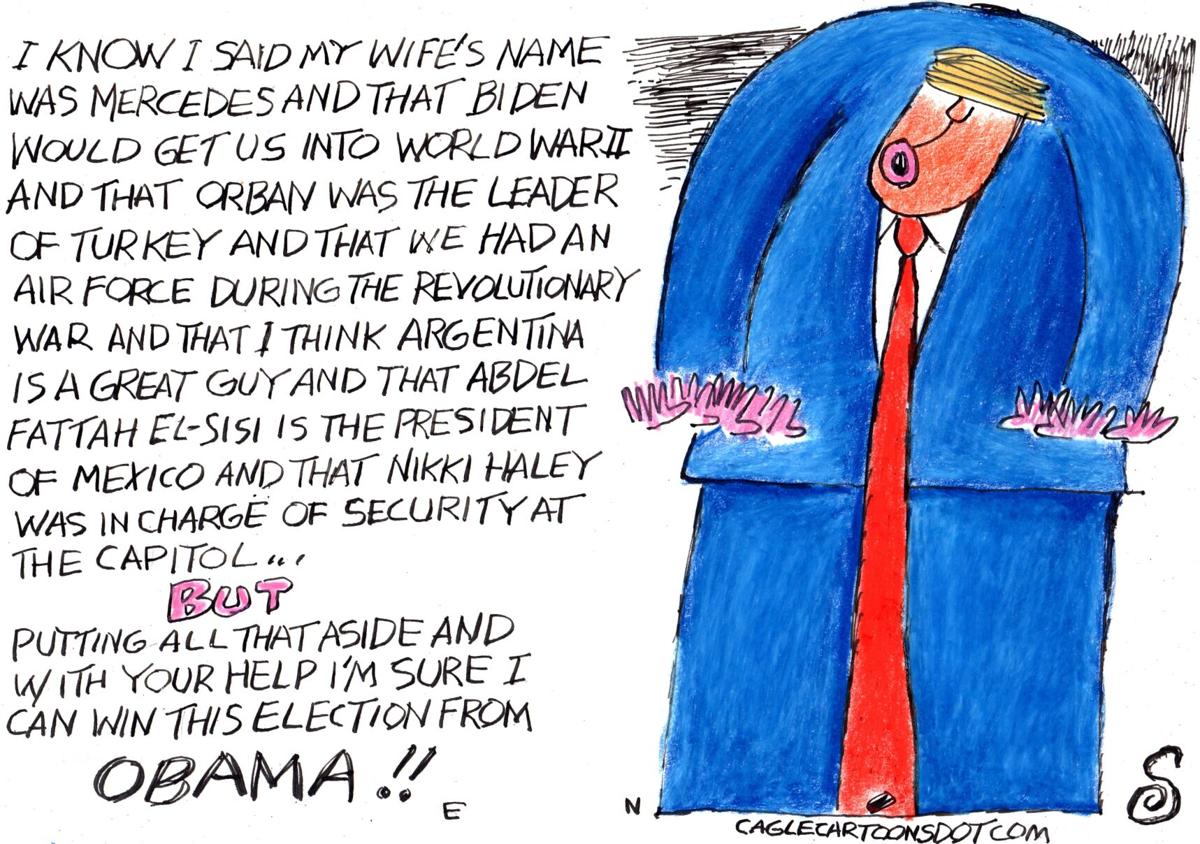 I KNOW I SAID MY WIFE'S NAME
WAS MERCEDES AND THAT BIDEN
WOULD GET US INTO WORLD WAR II
AND THAT ORBAN WAS THE LEADER
OF TURKEY AND THAT WE HAD AN
AIR FORCE DURING THE REVOLUTIONARY
WAR AND THAT I THINK ARGENTINA
IS A GREAT GUY AND THAT ABDEL
FATTAH EL-SISI IS THE PRESIDENT
OF MEXICO AND THAT NIKKI HALEY
WAS IN CHARGE OF SECURITY AT
THE CAPITOL...
BUT
PUTTING ALL THAT ASIDE AND
WITH YOUR HELP I'M SURE I
CAN WIN THIS ELECTION FROM
OBAMA!!
E
N
S
CAGLECARTOONSDOTCOM